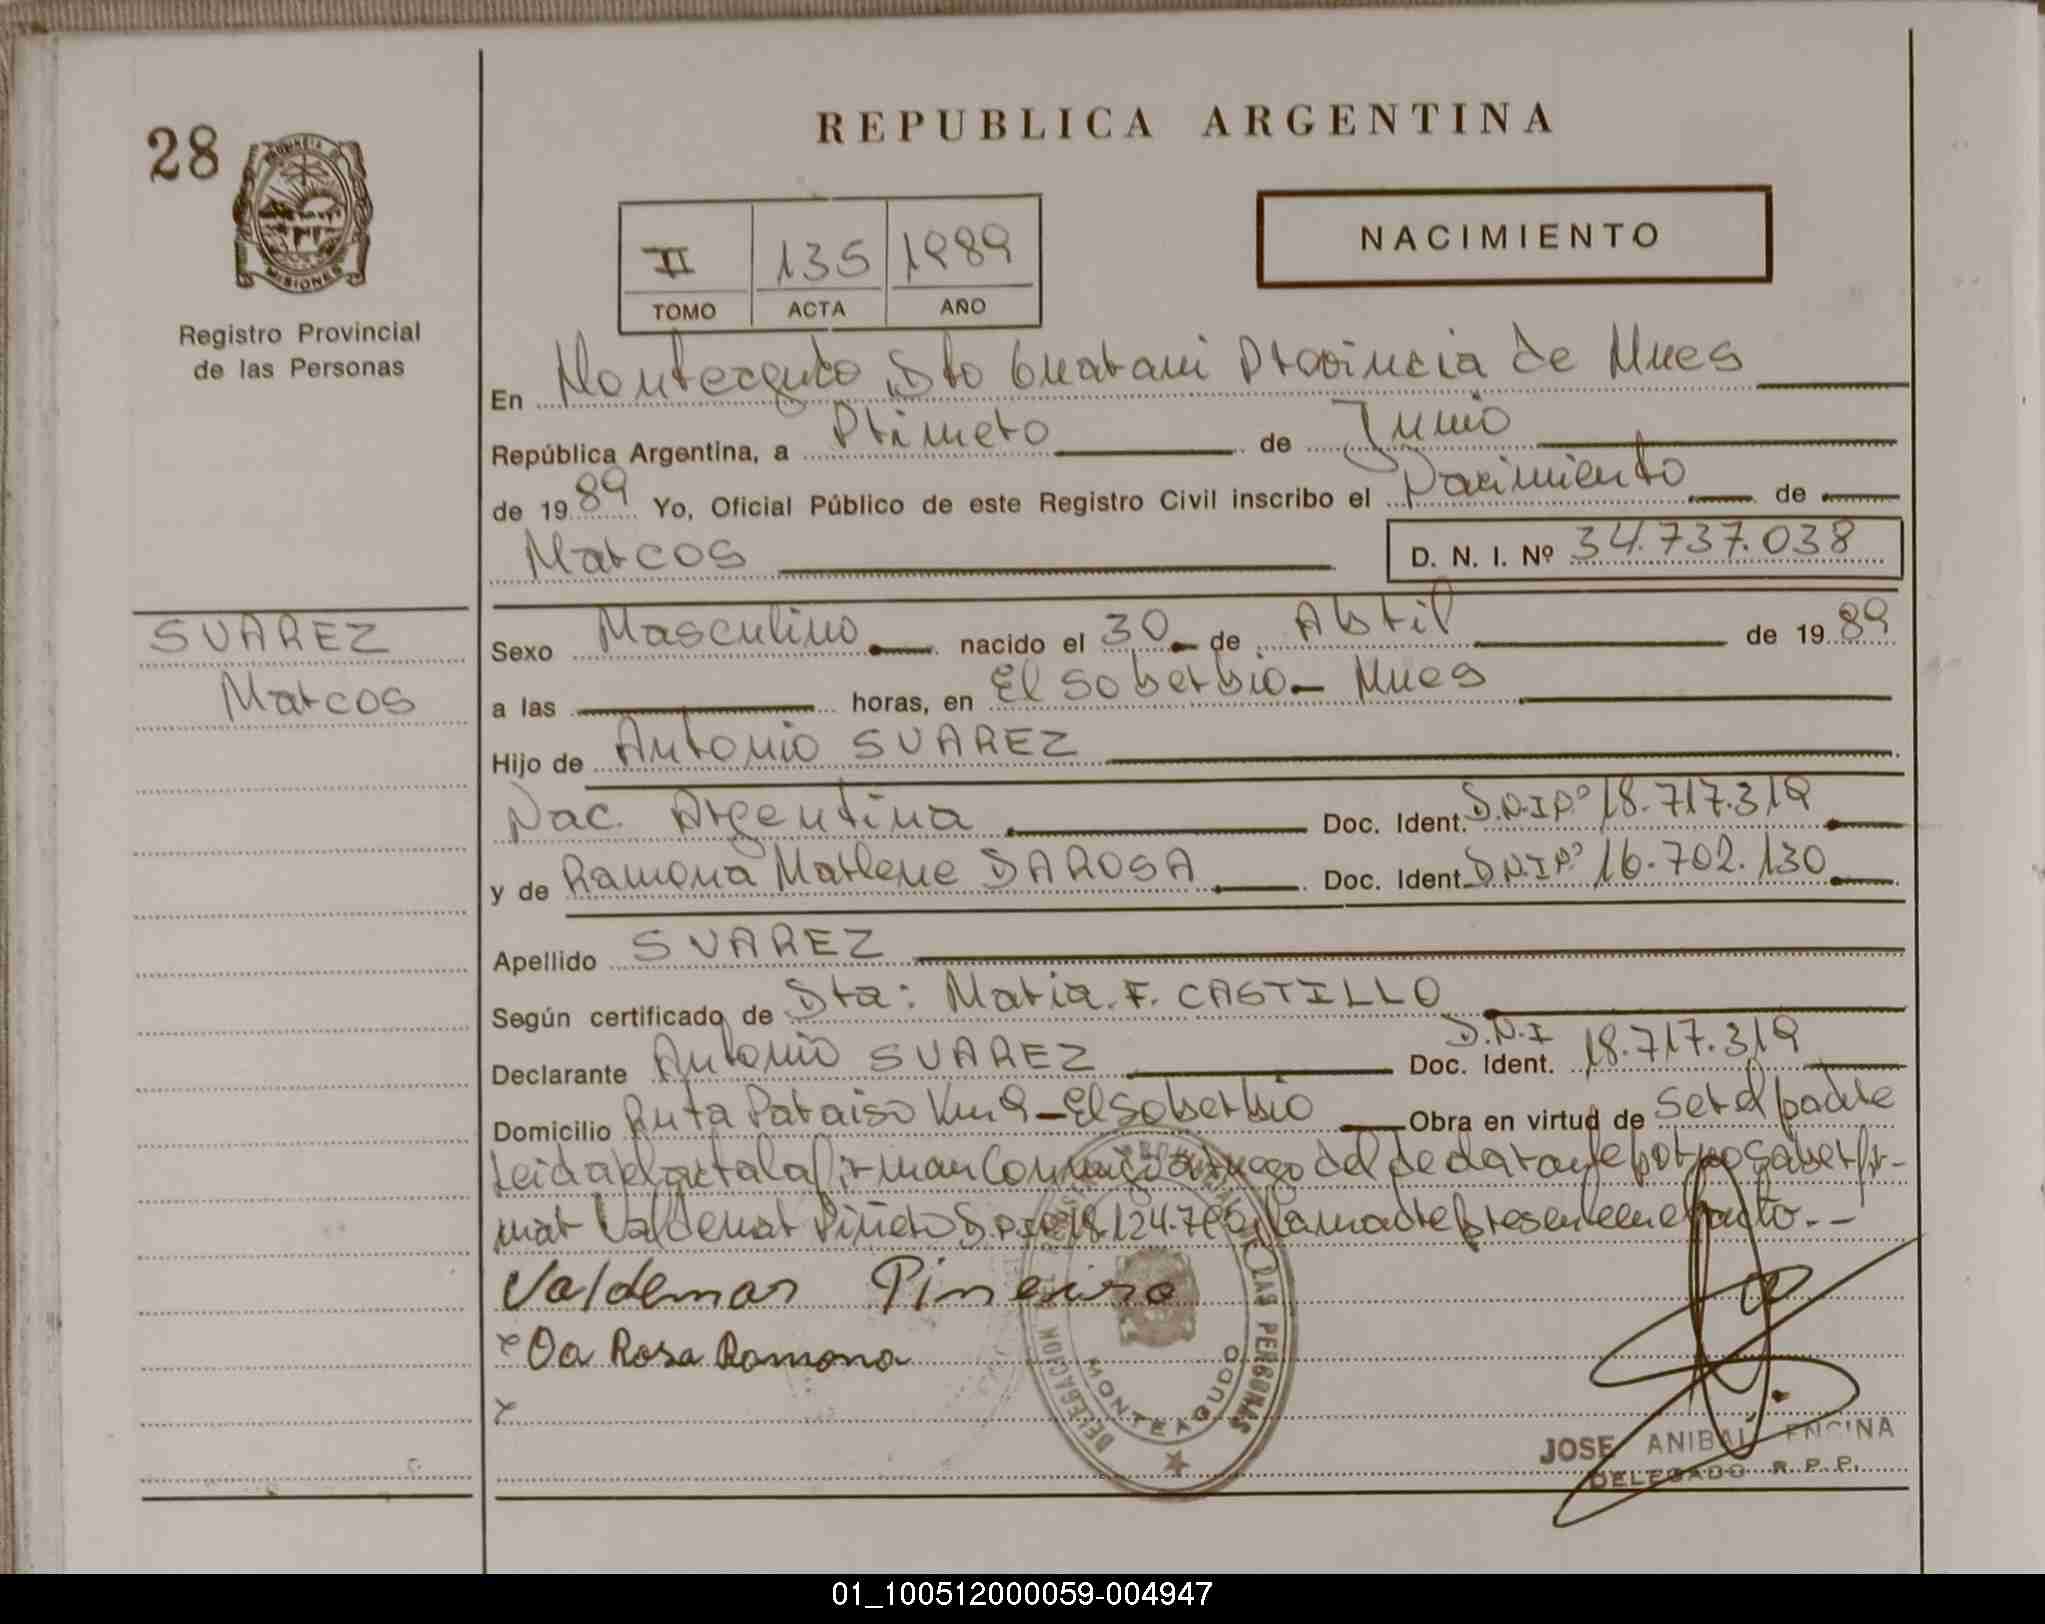 REPUBLICA ARGENTINA
28
PROVINCIA DE
MISIONES
Registro Provincial
de las Personas
II 135 1989
TOMO ACTA AÑO
NACIMIENTO
En Monteagudo, Dto Guarani Provincia de Mnes
República Argentina, a Primero de Junio
de 1989 Yo, Oficial Público de este Registro Civil inscribo el Nacimiento de
Marcos D. N. I. Nº 34.737.038
SUAREZ
Marcos
Sexo Masculino nacido el 30 de Abril de 1989
a las horas, en El Soberbio - Mnes
Hijo de Antonio SUAREZ
Nac. Argentina Doc. Ident. D.N.I Nº 18.717.319
y de Ramona Marlene DAROSA Doc. Ident. D.N.I Nº 16.702.130
Apellido SUAREZ
Según certificado de Dra: Maria. F. CASTILLO
Declarante Antonio SUAREZ Doc. Ident. D.N.I 18.717.319
Domicilio Ruta Paraiso Km 9 - El Soberbio Obra en virtud de ser el padre
Leida el acta la firman Conmigo a ruego del declarante por no saber fir-
mar Valdemar Piñeiro 18.124.7 la madre presente en el acto. -
Valdemar Pineiro
x Da Rosa Ramona
x
DELEGACION LAS PERSONAS
MONTEAGUDO
JOSE ANIBAL ENCINA
DELEGADO R. P. P.
01_100512000059-004947